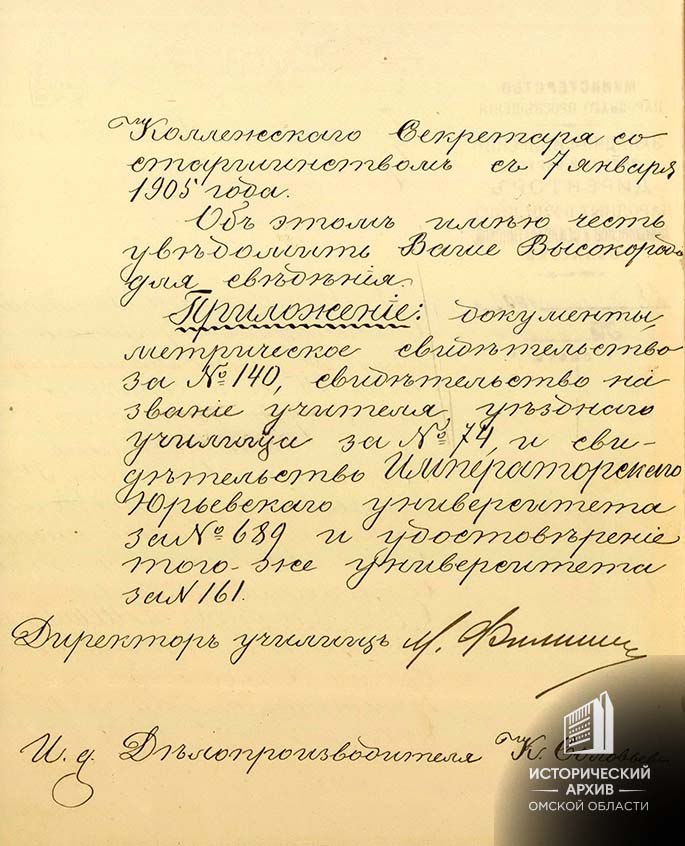 Коллежскаго Секретаря со
старшинствомъ съ 7 января
1905 года.
Объ этомъ имѣю честь
увѣдомить Ваше Высокород.
для свѣдѣнія.
Приложеніе: документы,
метрическое свидѣтельство
за № 140, свидѣтельство на
званіе учителя уѣзднаго
училища за № 74, и сви-
дѣтельство Императорскаго
Юрьевскаго университета
за № 689 и удостовѣреніе
того-же университета
за N 161.
Директоръ училищъ М.
И. д. Дѣлопроизводителя К.
ИСТОРИЧЕСКИЙ
АРХИВ
ОМСКОЙ ОБЛАСТИ